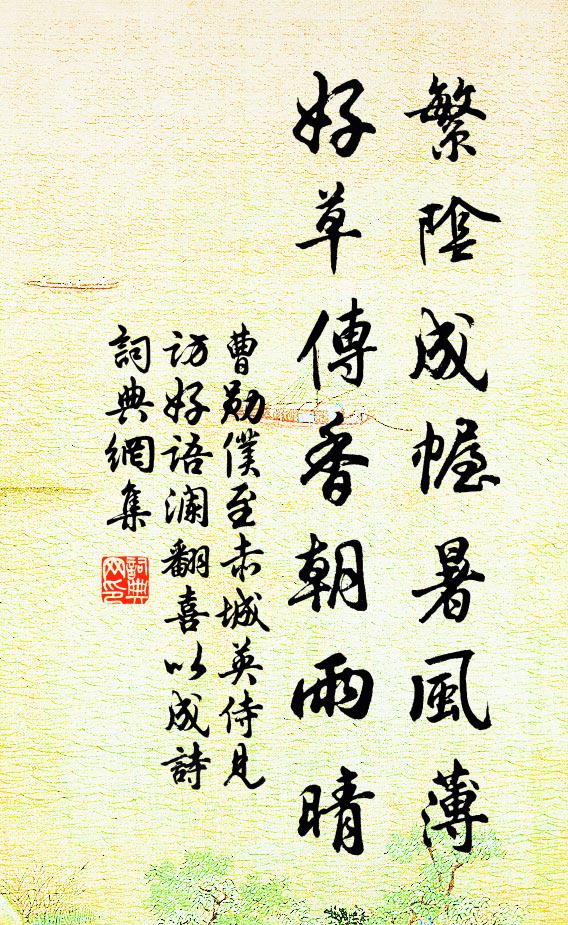 繁陰成幄暑風薄
好草傳香朝雨晴
曹勛僕至赤城英侍見
訪好語瀾翻喜以成詩
詞典網集
詞典網印